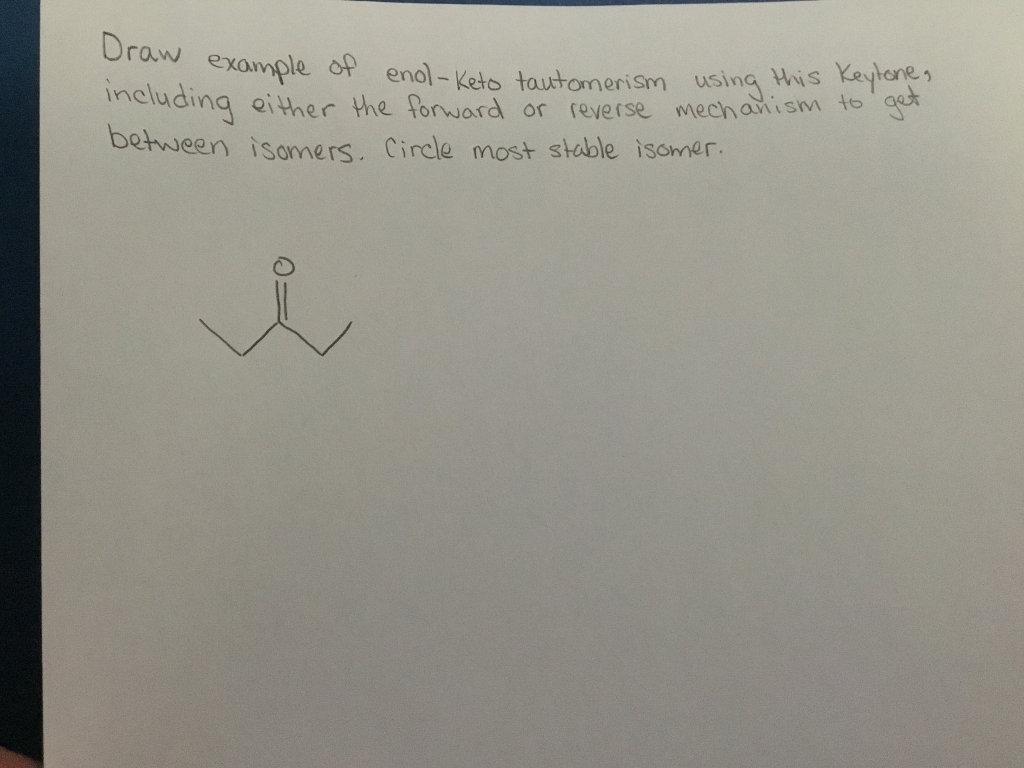 Draw example of enol-Keto tautomerism using this Keytone,
including either the forward or reverse mechanism to get
between isomers. Circle most stable isomer.
O